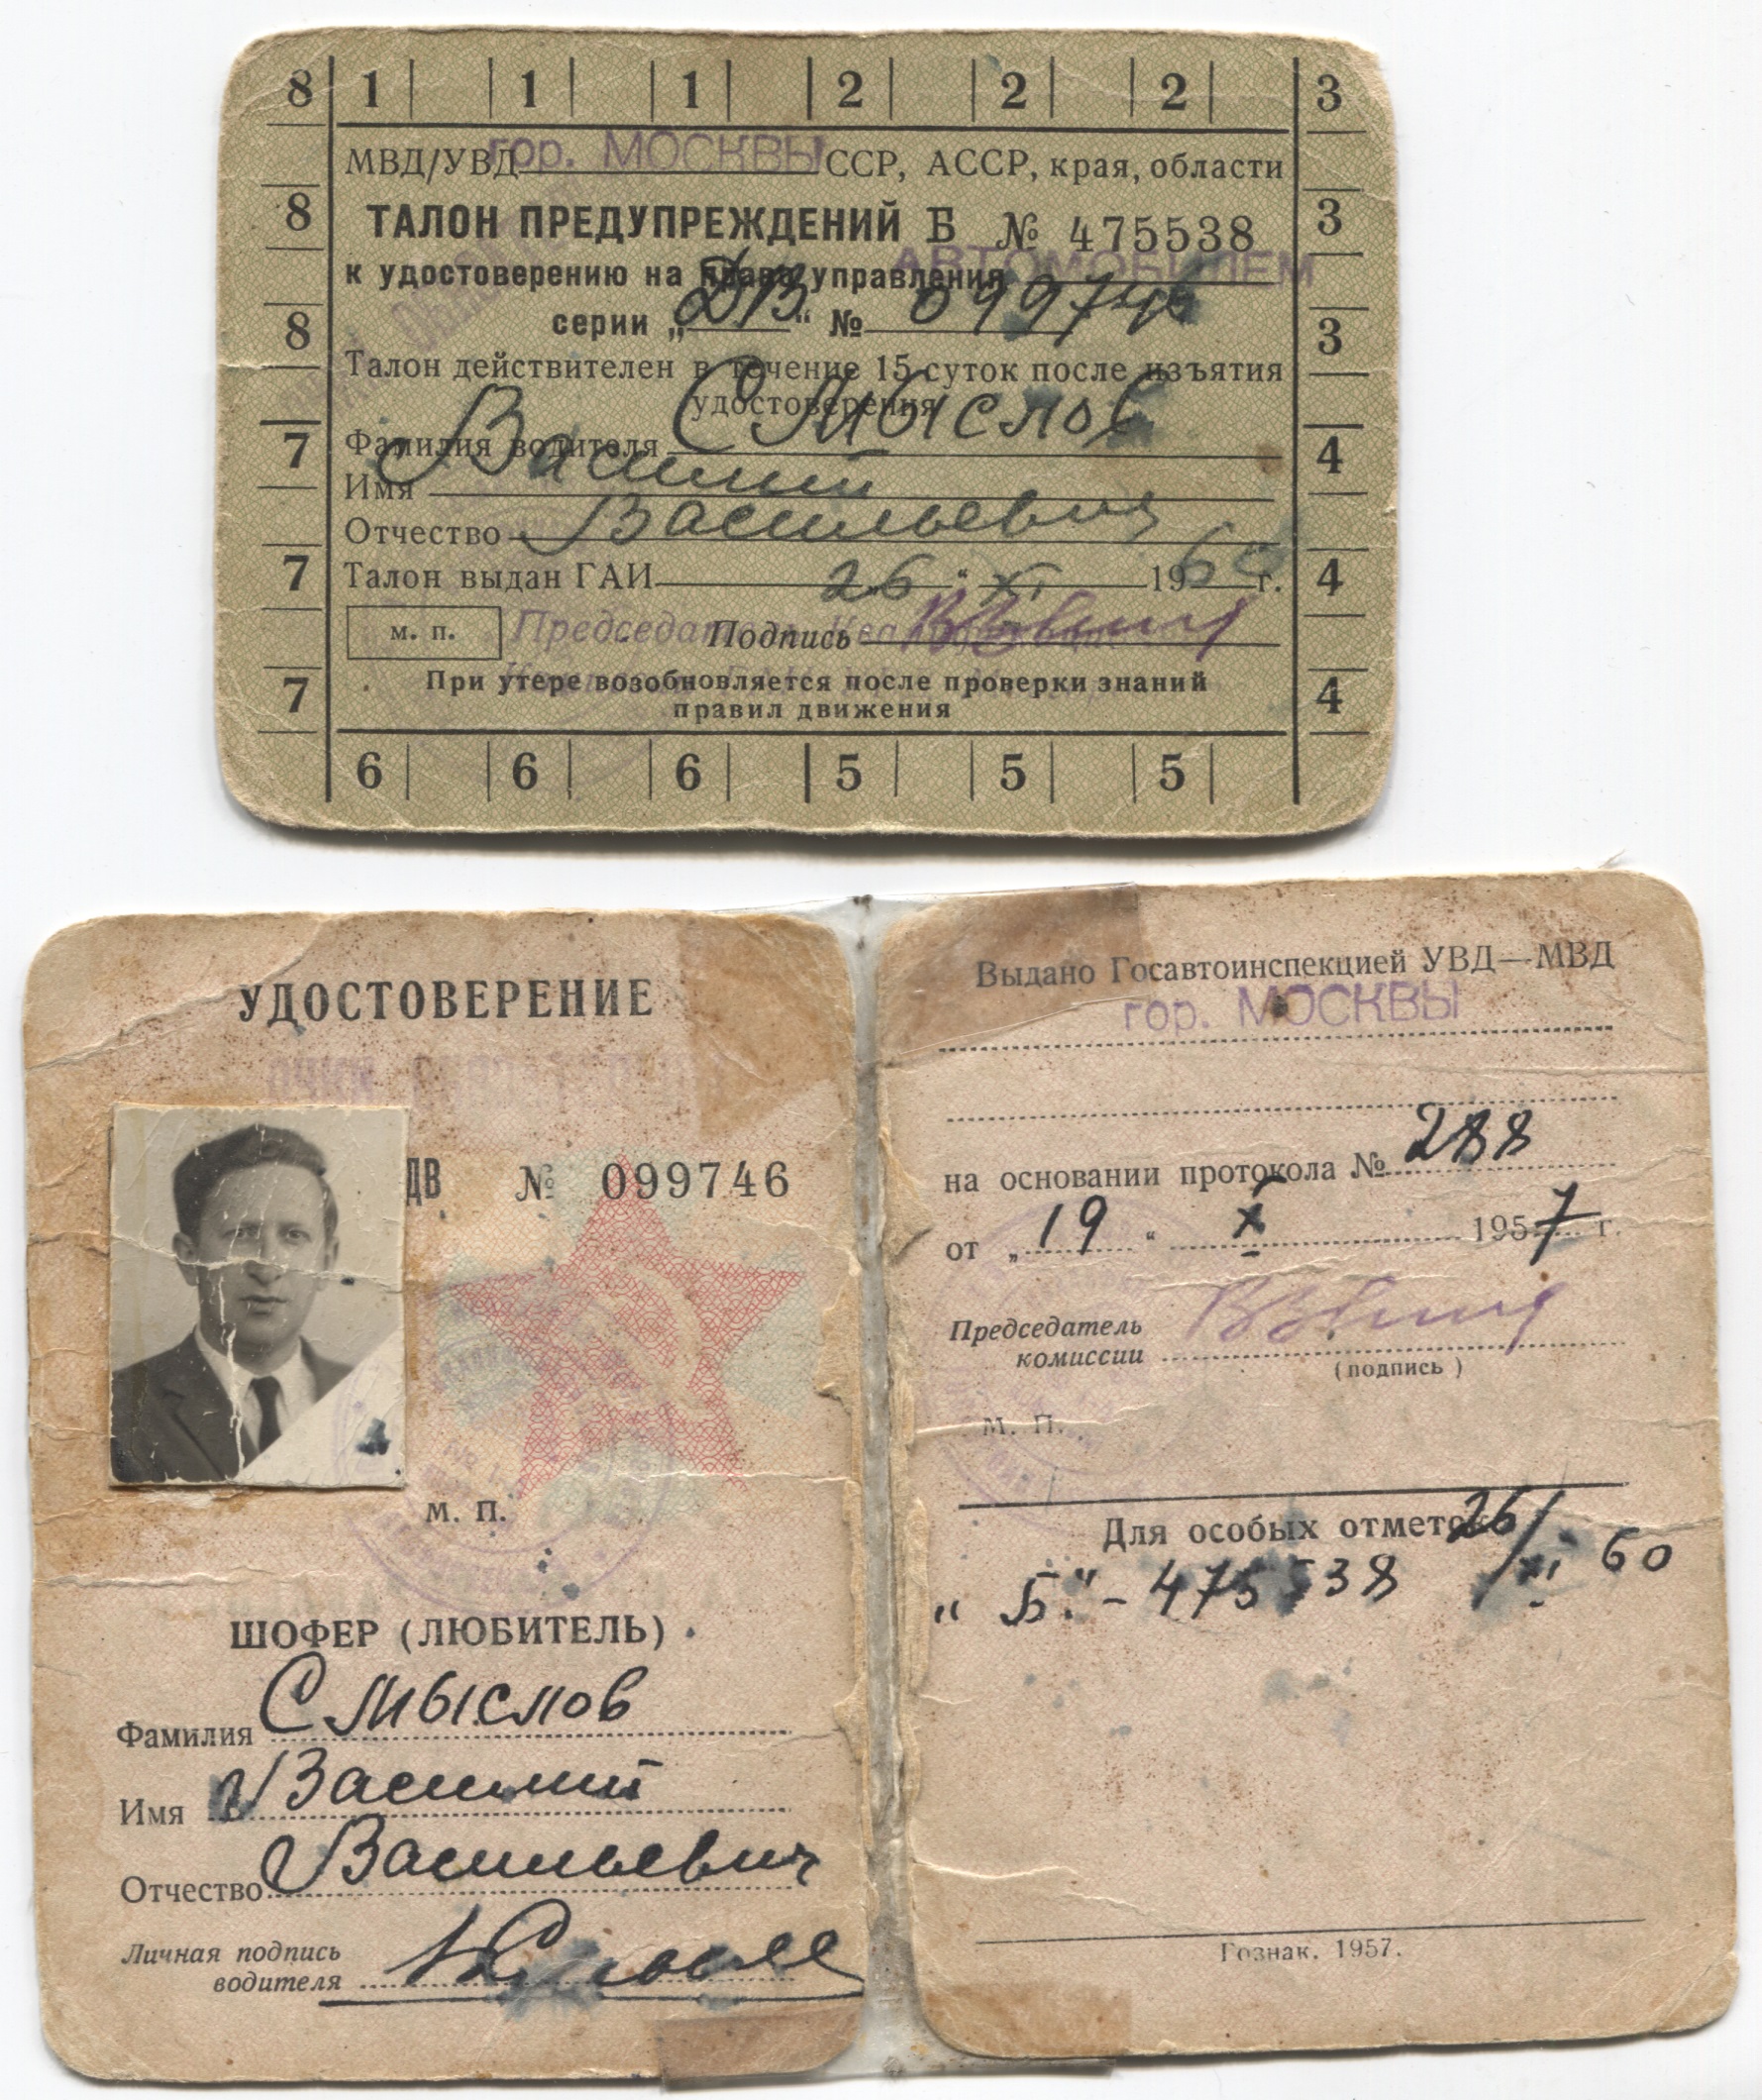 8 1 1 1 2 2 2 3
гор. МОСКВЫ
МВД/УВД ССР, АССР, края, области
8 ТАЛОН ПРЕДУПРЕЖДЕНИЙ Б № 475538 3
АВТОМОБИЛЕМ
к удостоверению на право управления
8 серии „ДВ“ № 099746 3
Талон действителен в течение 15 суток после изъятия
удостоверения
7 Фамилия водителя Смыслов 4
Имя Василий
Отчество Васильевич
7 Талон выдан ГАИ 26 “ XI 1960 г. 4
м. п. Председатель Подпись
7 При утере возобновляется после проверки знаний 4
правил движения
6 6 6 5 5 5
УДОСТОВЕРЕНИЕ
ДВ № 099746
М. П.
ШОФЕР (ЛЮБИТЕЛЬ)
Фамилия Смыслов
Имя Василий
Отчество Васильевич
Личная подпись
водителя
Выдано Госавтоинспекцией УВД—МВД
гор. МОСКВЫ
на основании протокола № 288
от „19“ X 1957 г.
Председатель
комиссии
(подпись)
М. П.
Для особых отметок
„Б“ - 475538 26/XI 60
Гознак. 1957.